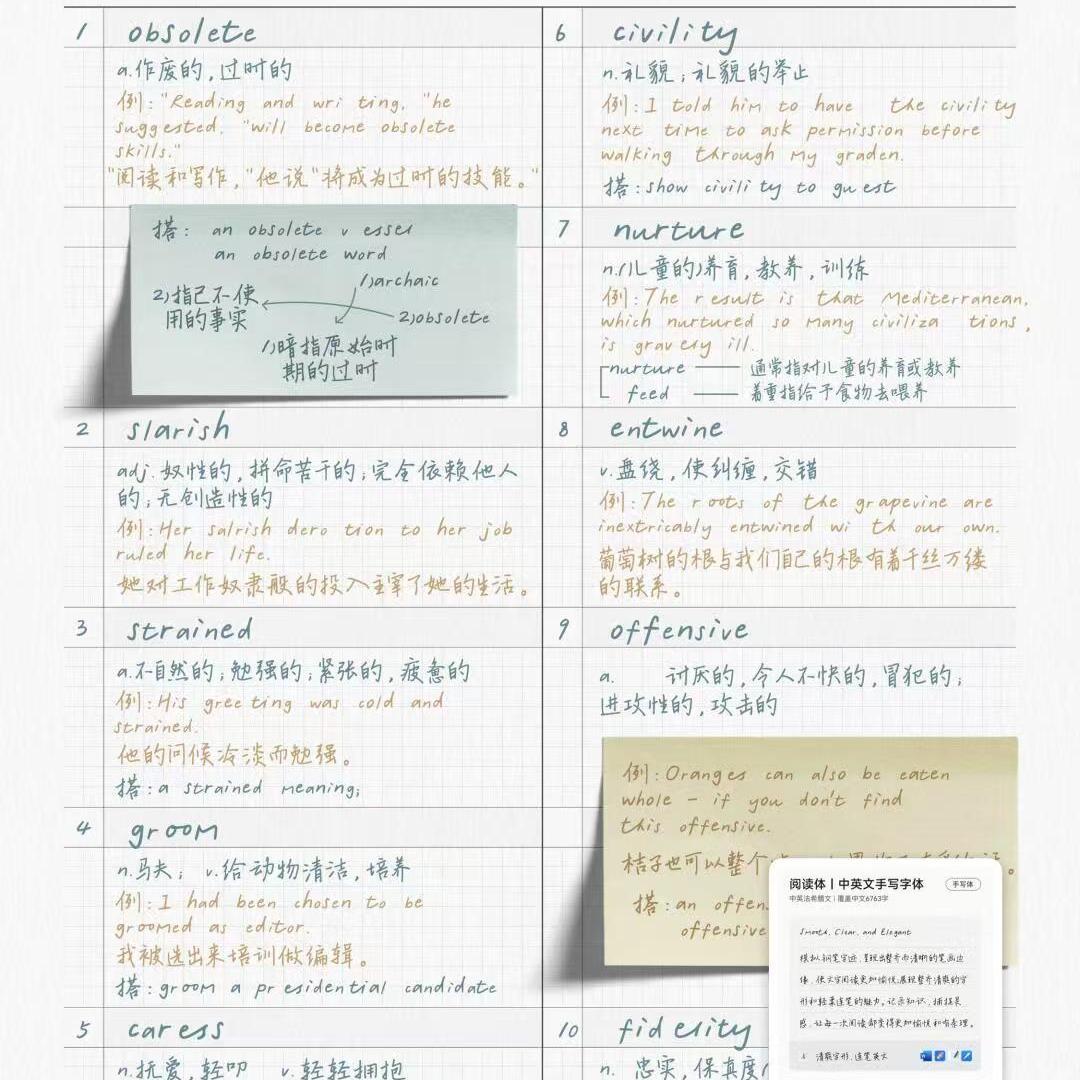 1 obsolete
a.作废的,过时的
例:"Reading and wri ting, "he
suggested, "will become obsolete
skills."
"阅读和写作,"他说"将成为过时的技能。"
搭: an obsolete v essel
an obsolete word
1)archaic
2)指已不使
用的事实
2)obsolete
1)暗指原始时
期的过时
2 slarish
adj.奴性的,拼命苦干的;完全依赖他人
的;无创造性的
例:Her salrish dero tion to her job
ruled her life.
她对工作奴隶般的投入主宰了她的生活。
3 strained
a.不自然的;勉强的;紧张的,疲惫的
例:His gree ting was cold and
strained.
他的问候冷淡而勉强。
搭:a strained meaning;
4 groom
n.马夫; v.给动物清洁,培养
例:I had been chosen to be
groomed as editor.
我被选出来培训做编辑。
搭:groom a pr esidential candidate
5 caress
n.抚爱,轻叩 v.轻轻拥抱
6 civility
n.礼貌;礼貌的举止
例:I told him to have the civility
next time to ask permission before
walking through my graden.
搭:show civili ty to gu est
7 nurture
n.(儿童的)养育,教养,训练
例:The r esult is that Mediterranean,
which nurtured so many civiliza tions,
is gravery ill.
nurture —— 通常指对儿童的养育或教养
feed —— 着重指给予食物去喂养
8 entwine
v.盘绕,使纠缠,交错
例:The r oots of the grapevine are
inextricably entwined wi th our own.
葡萄树的根与我们自己的根有着千丝万缕
的联系。
9 offensive
a. 讨厌的,令人不快的,冒犯的;
进攻性的,攻击的
例:Oranges can also be eaten
whole - if you don't find
this offensive.
桔子也可以整个
搭:an offen
offensive
10 fid elity
n. 忠实,保真度
阅读体|中英文手写字体
手写体
中英法希腊文|覆盖中文6763字
Smooth, Clear, and Elegant
模拟钢笔字迹,呈现出整齐而清晰的笔画边
缘,使文字阅读更加愉悦,展现整齐清爽的字
形和轻柔连笔的魅力,记录知识、捕捉灵
感,让每一次阅读都变得更加愉悦和有条理。
清爽字形,连笔英文